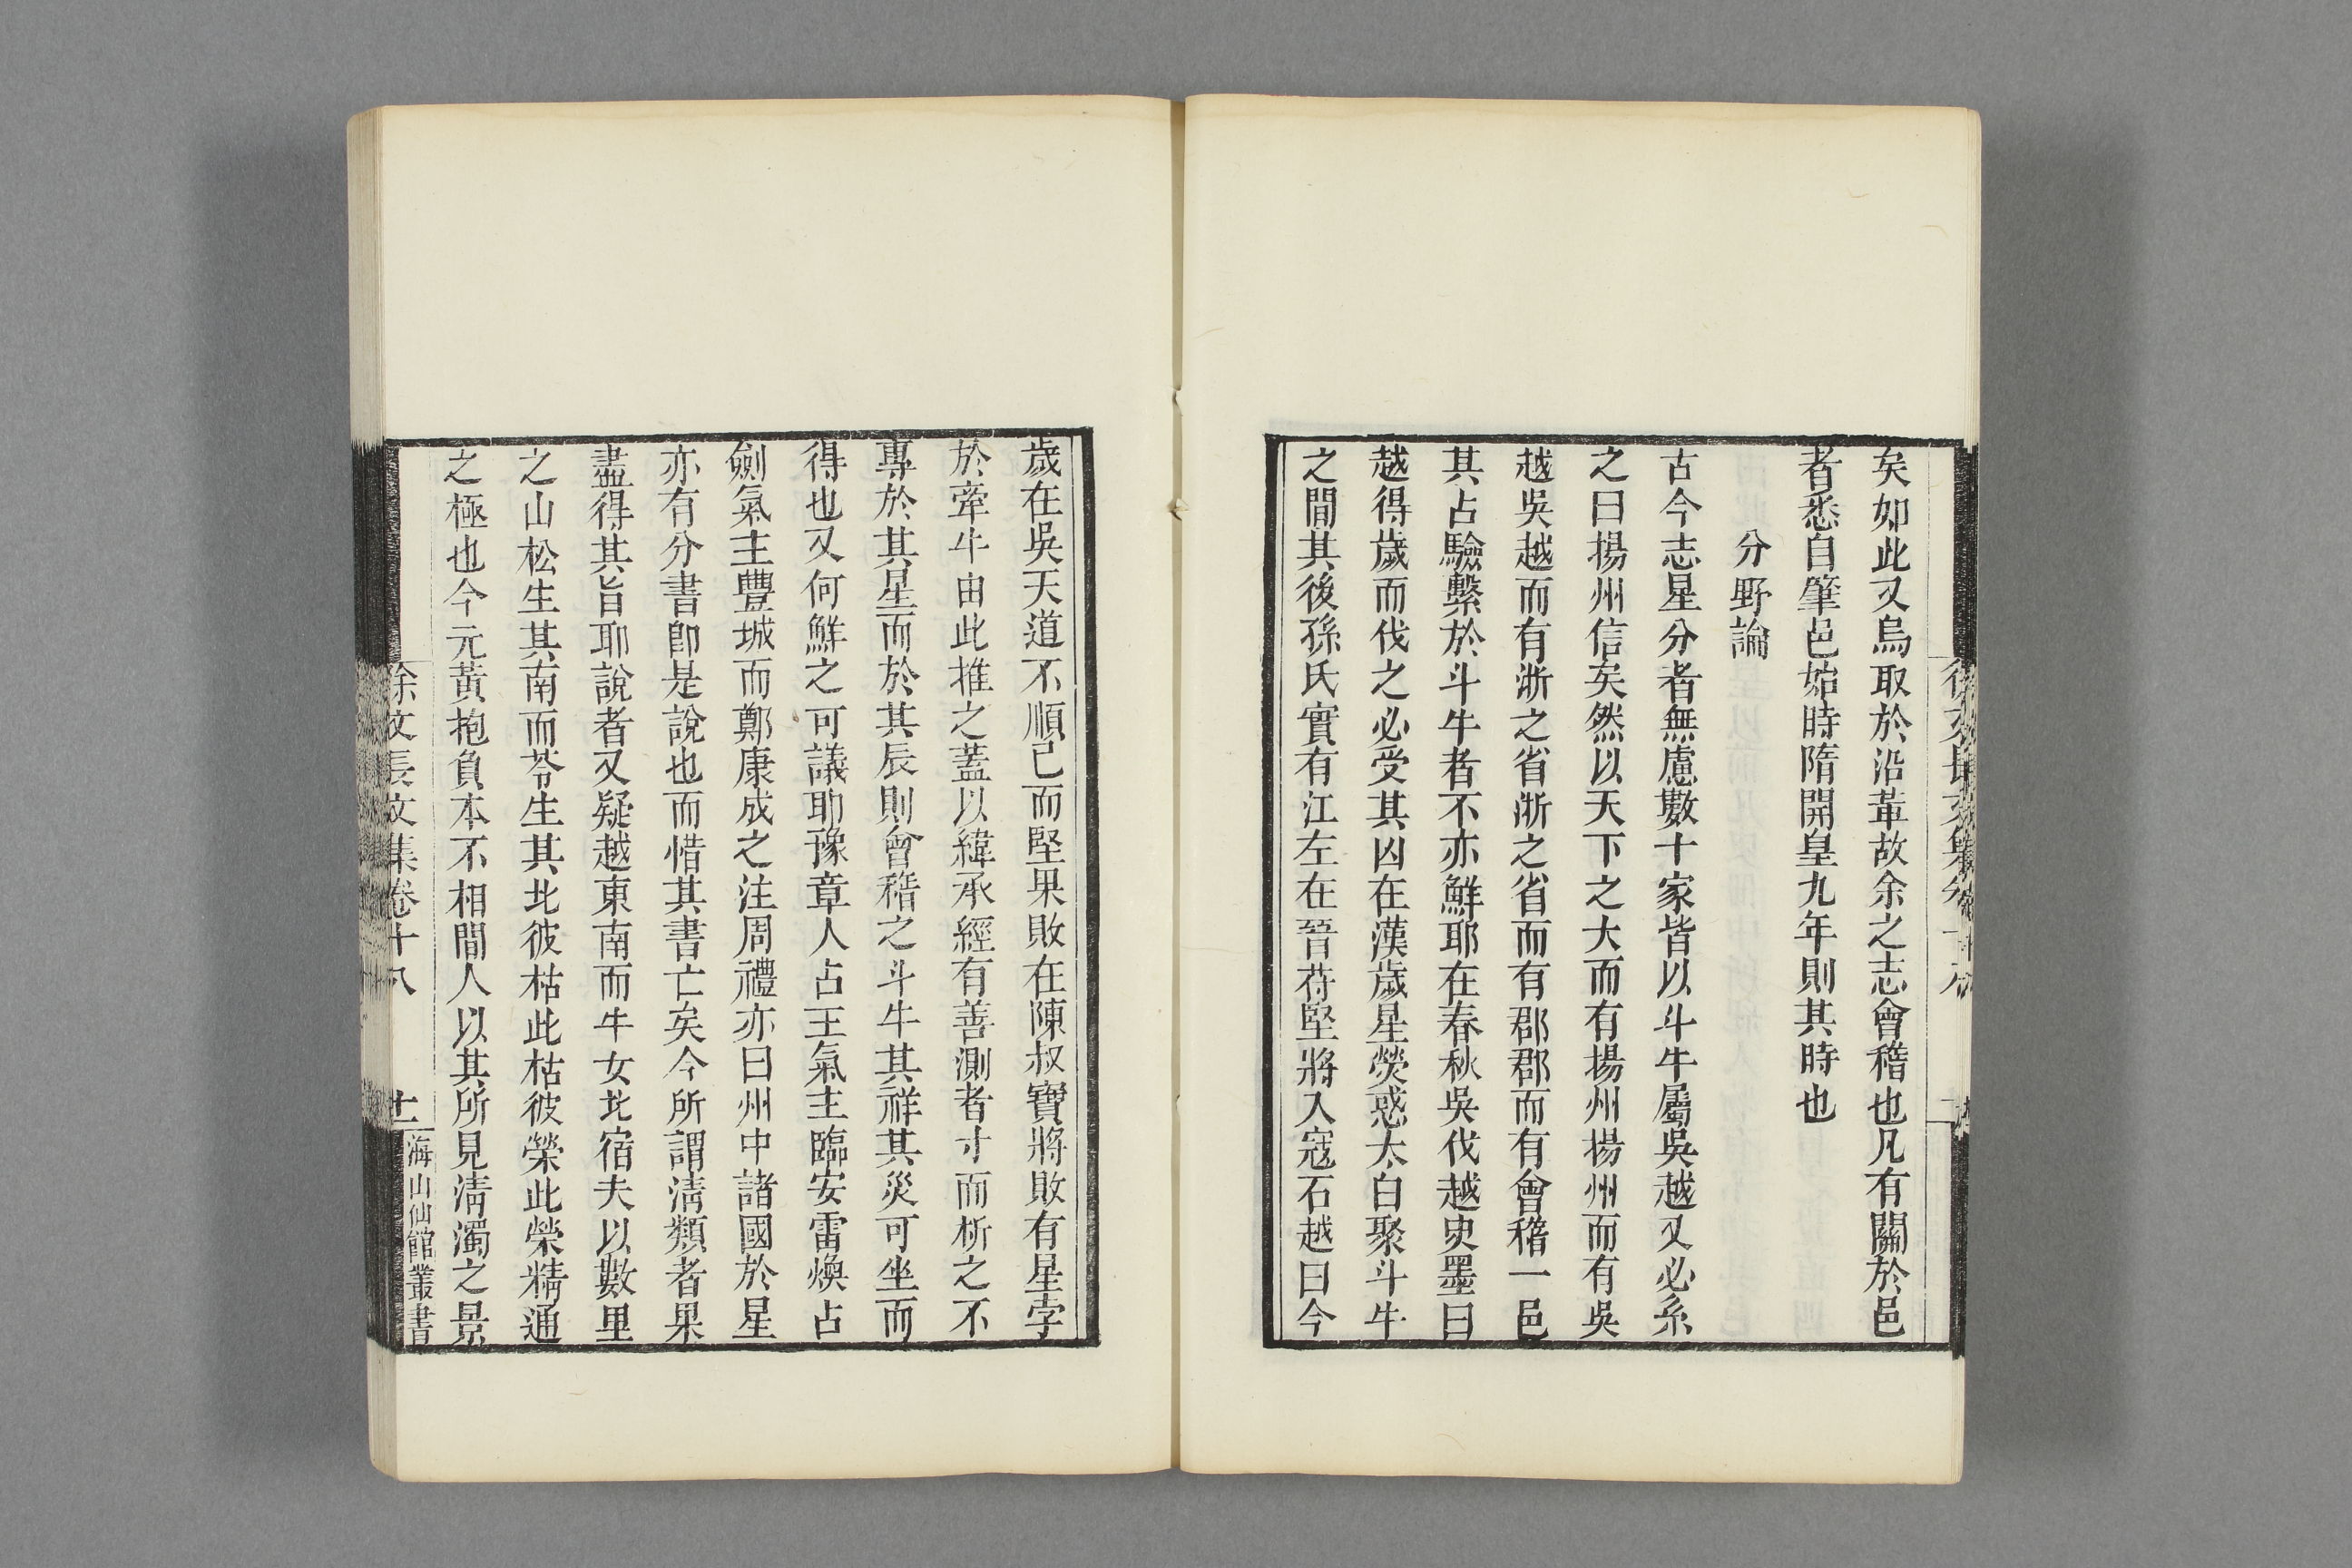 矣如此又烏取於沿革故余之志會稽也凡有關於邑
者悉自肇邑始時隋開皇九年則其時也
分野論
古今志星分者無慮數十家皆以斗牛屬吳越又必系
之曰揚州信矣然以天下之大而有揚州揚州而有吳
越吳越而有浙之省浙之省而有郡郡而有會稽一邑
其占驗繫於斗牛者不亦鮮耶在春秋吳伐越史墨曰
越得歲而伐之必受其凶在漢歲星熒惑太白聚斗牛
之間其後孫氏實有江左在晉苻堅將入寇石越曰今
歲在吳天道不順己而堅果敗在陳叔寶將敗有星孛
於牽牛由此推之蓋以緯承經有善測者寸而析之不
專於其星而於其辰則會稽之斗牛其祥其災可坐而
得也又何鮮之可議耶豫章人占王氣主臨安雷煥占
劍氣主豐城而鄭康成之注周禮亦曰州中諸國於星
亦有分書卽是說也而惜其書亡矣今所謂淸類者果
盡得其旨耶說者又疑越東南而牛女北宿夫以數里
之山松生其南而苓生其北彼枯此枯彼榮此榮精通
之極也今元黃抱負本不相間人以其所見淸濁之景
徐文長文集卷十八
十一
海山仙館叢書